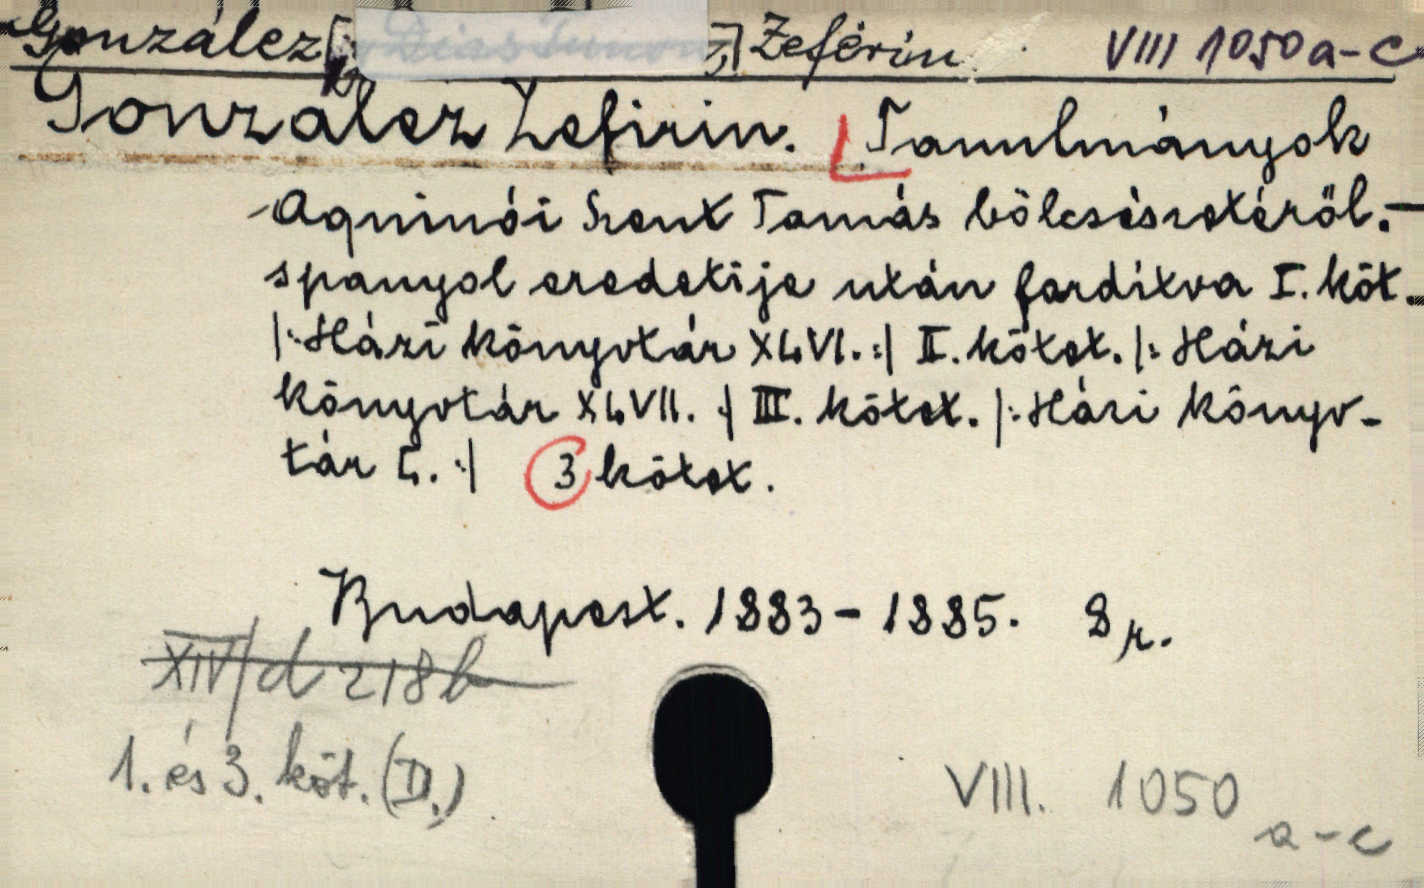 González [ ] Zeferin VIII 1050 a-c
González Zefirin. Tanulmányok
Aquinói Szent Tamás bölcsészetéről.-
spanyol eredetije után fordítva I. köt.-
|: Házi könyvtár XLVI. :| II. kötet. |: Házi
könyvtár XLVII. :| III. kötet. |: Házi könyv-
tár L. :| 3 kötet.
Budapest. 1883-1885. 8r.
XIV/d 218b
1. és 3. köt. (D.)
VIII. 1050
a-c